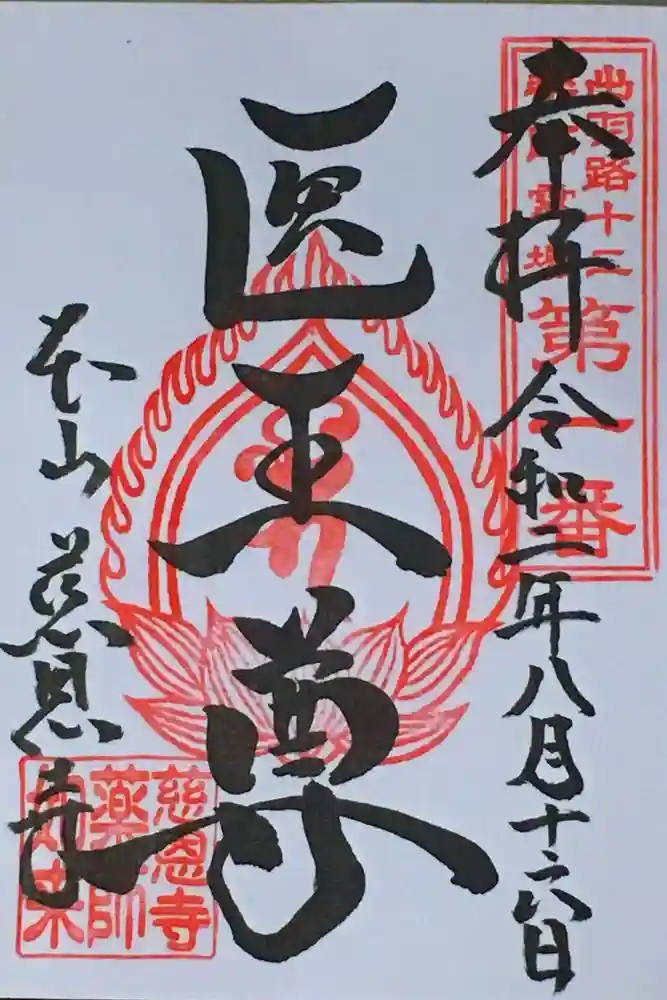 奉拝
令和二年八月十六日
出羽路十二
薬師霊場
第一番
医王尊
本山
慈恩寺
慈恩寺
薬師
如来